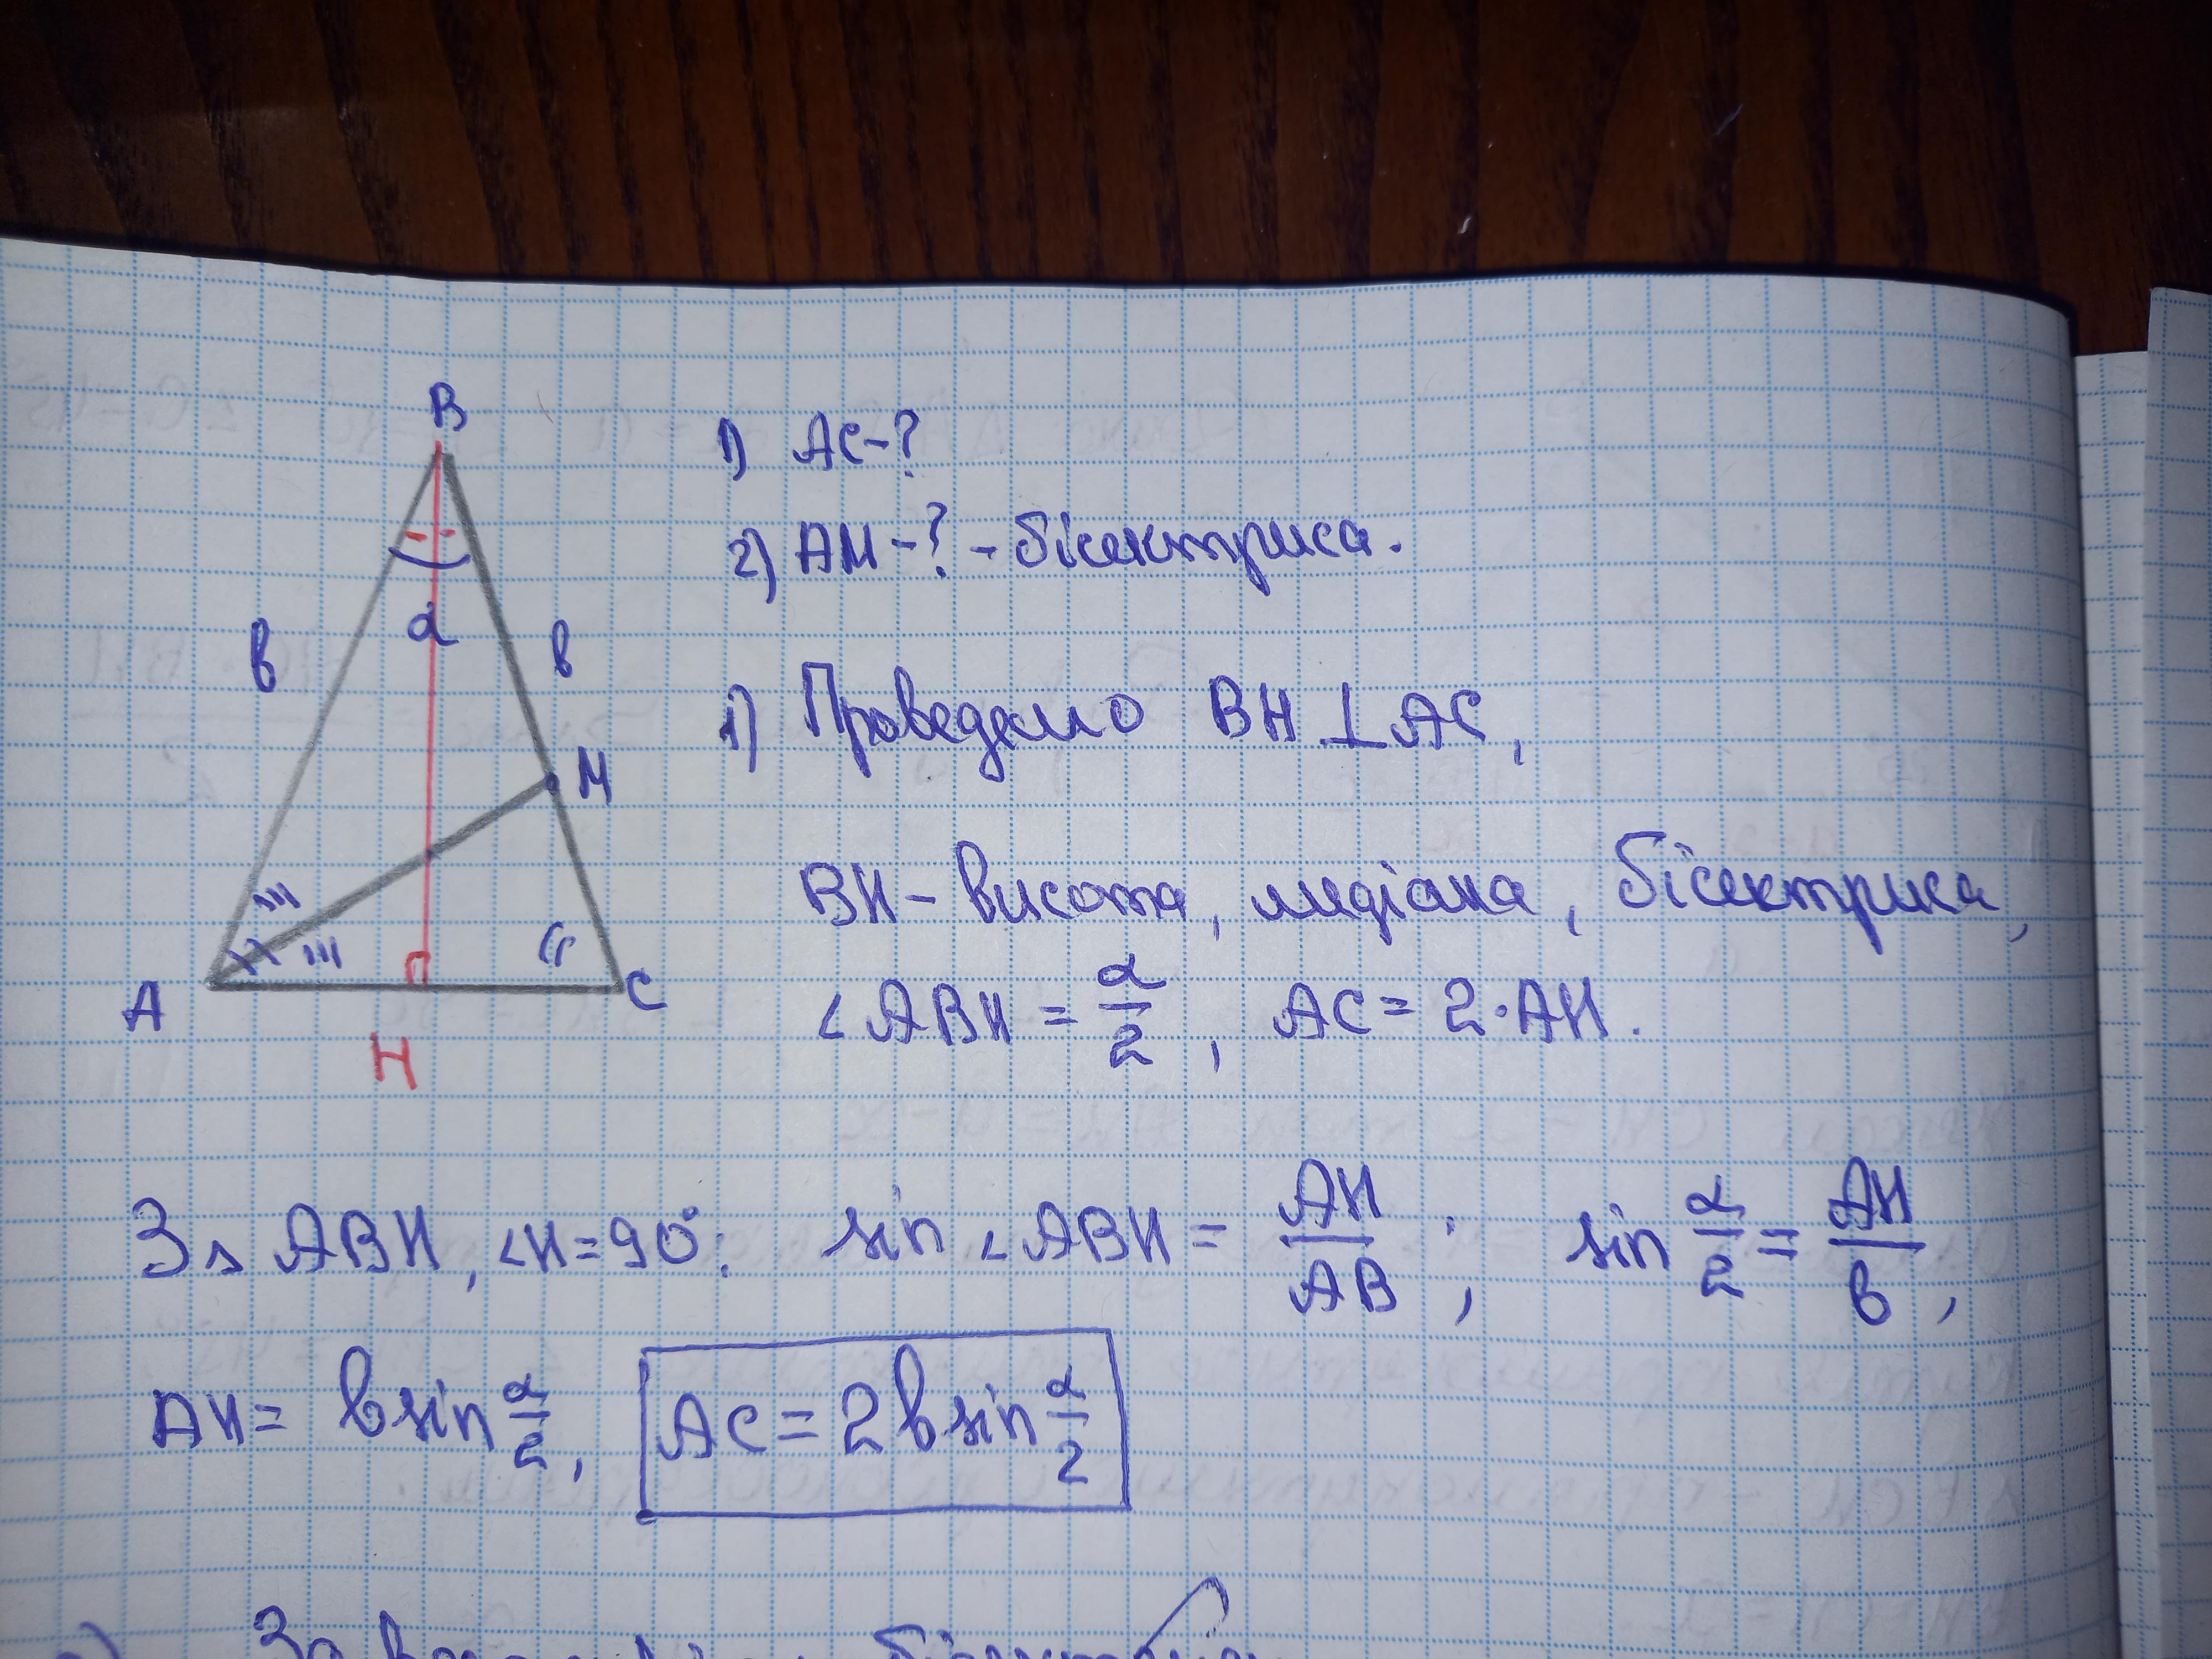 B
α
в
в
M
A
C
H
1) AC-?
2) AM-? - бісектриса.
1) Проведемо BH ⊥ AC,
BH - висота, медіана, бісектриса,
∠ABH = α/2, AC = 2·AH.
З △ ABH, ∠H = 90°: sin ∠ABH = AH/AB; sin α/2 = AH/в,
AH = в sin α/2, AC = 2в sin α/2
За